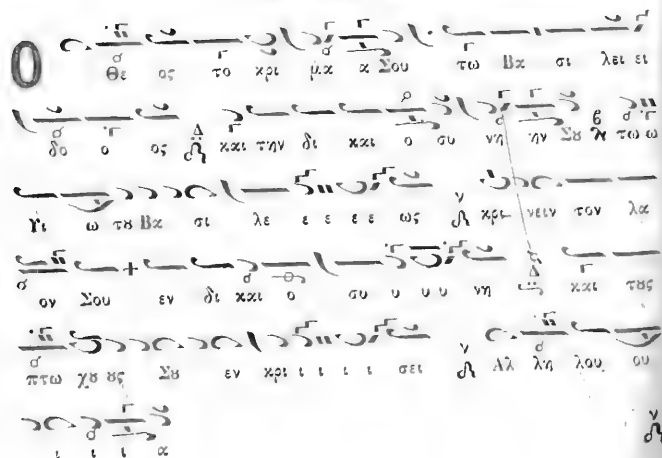 Ο Θε ος το κρι μα α Σου τω Βα σι λει ει
δο ο ος Δ και την δι και ο συ νη ην Σȣ β τω ω
Υι ω τȣ Βα σι λε ε ε ε ε ως ν κρι νειν τον λα
ον Σου εν δι και ο συ υ υ υ νη Δ και τȣς
πτω χȣ ȣς Σȣ εν κρι ι ι ι ι σει ν Αλ λη λου ου
ι ι ι α ν